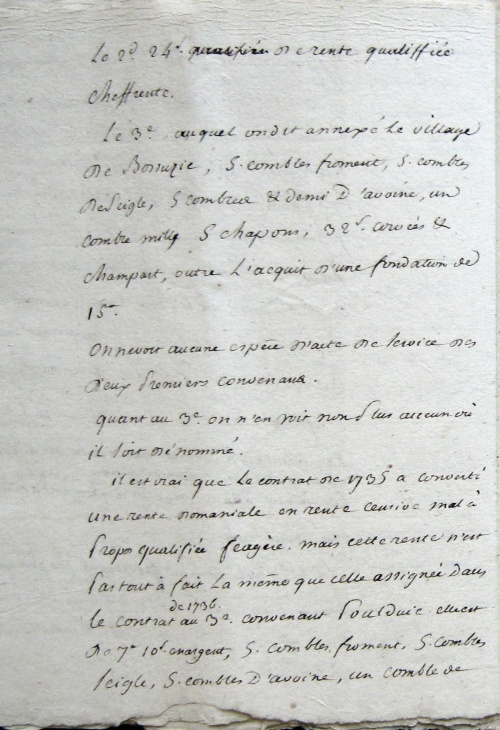 Le 2d. 24l. de rente qualiffiée
cheffrente.
Le 3e. auquel on dit annexé Le village
de , 5. combles froment, 5. combles
de Seigle, 5 combles & demi D'avoine, un
comble mille 5 chapons, 32s. corvées &
champart, outre L'acquit d'une fondation de
15
on ne voit aucune espèce d'acte de service des
deux premiers convenans.
quant au 3e. on n'en voit non plus aucun où
il soit dénommé.
il est vrai que Le contrat de 1735 a converti
une rente domaniale en rente censive mal à
propos qualifiée feagère. mais cette rente n'est
pas tout à fait La même que celle assignée dans
de 1736.
le contrat au 3e. convenant Poulduic. elle est
de 7l 10s. en argent, 5. combles froment, 5. combles
seigle, 5. combles D'avoine, un comble de